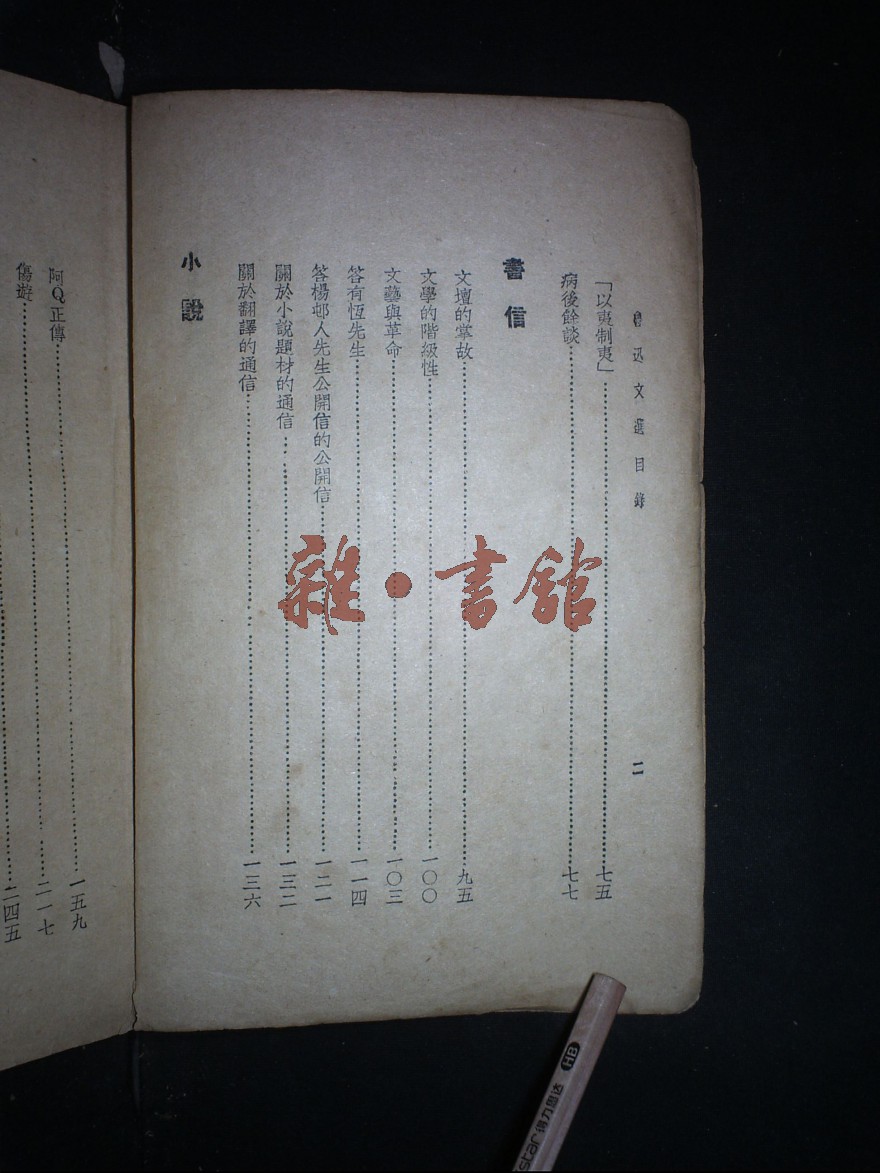 魯迅文選目錄
二
「以夷制夷」……七五
病後餘談……七七
書信
文壇的掌故……九五
文學的階級性……一〇〇
文藝與革命……一〇三
答有恆先生……一一四
答楊邨人先生公開信的公開信……一二一
關於小說題材的通信……一三二
關於翻譯的通信……一三六
小說
阿Q正傳……一五九
傷逝……二一七
二四五
雜·書館
star得力思达 HB